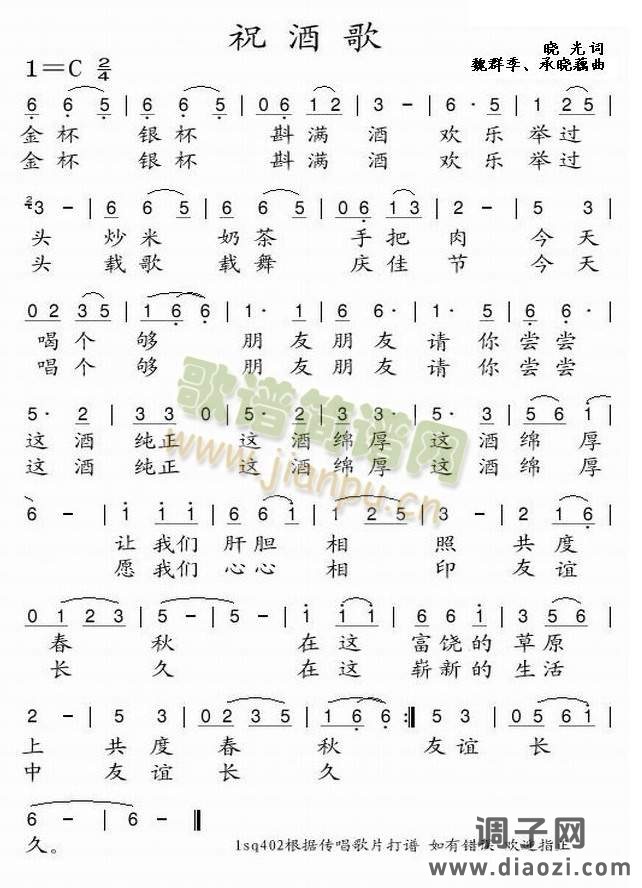 祝酒歌
1=C 2/4
晓光词
魏群季、承晓藕曲
6 6 5 | 6 6 5 | 0 6 1 2 | 3 - | 6 · 5 | 1 2 5 |
金杯 银杯 斟满 酒 欢乐举过
金杯 银杯 斟满 酒 欢乐举过
3 - | 6 6 5 | 6 6 5 | 0 6 1 3 | 2 - | 5 3 |
头 炒米 奶茶 手把 肉 今天
头 载歌 载舞 庆佳 节 今天
0 2 3 5 | 1 6 6 | 1 · 1 | 6 6 · | 1 · 5 | 6 6 · |
喝个 够 朋友朋友请你尝尝
唱个 够 朋友朋友请你尝尝
5 · 2 | 3 3 0 | 5 · 2 | 3 3 · | 5 · 3 | 5 6 1 |
这酒 纯正 这酒绵厚 这酒绵厚
这酒 纯正 这酒绵厚 这酒绵厚
6 - | 1 1 1 | 6 6 1 | 1 2 5 | 3 - | 2 1 6 |
让我们 肝胆 相 照 共度
愿我们 心心 相 印 友谊
0 1 2 3 | 5 - | 5 - | 1 1 1 | 6 6 1 | 5 6 5 3 |
春 秋 在这 富饶的 草原
长 久 在这 崭新的 生活
2 - | 5 3 | 0 2 3 5 | 1 6 6 :| 5 3 | 0 5 6 1 |
上 共度 春 秋 友谊 长
中 友谊 长 久
6 - | 6 - ‖
久。
歌谱简谱网
www.jianpu.cn
lsq402根据传唱歌片打谱 如有错误 欢迎指正
调子网
www.diaozi.com